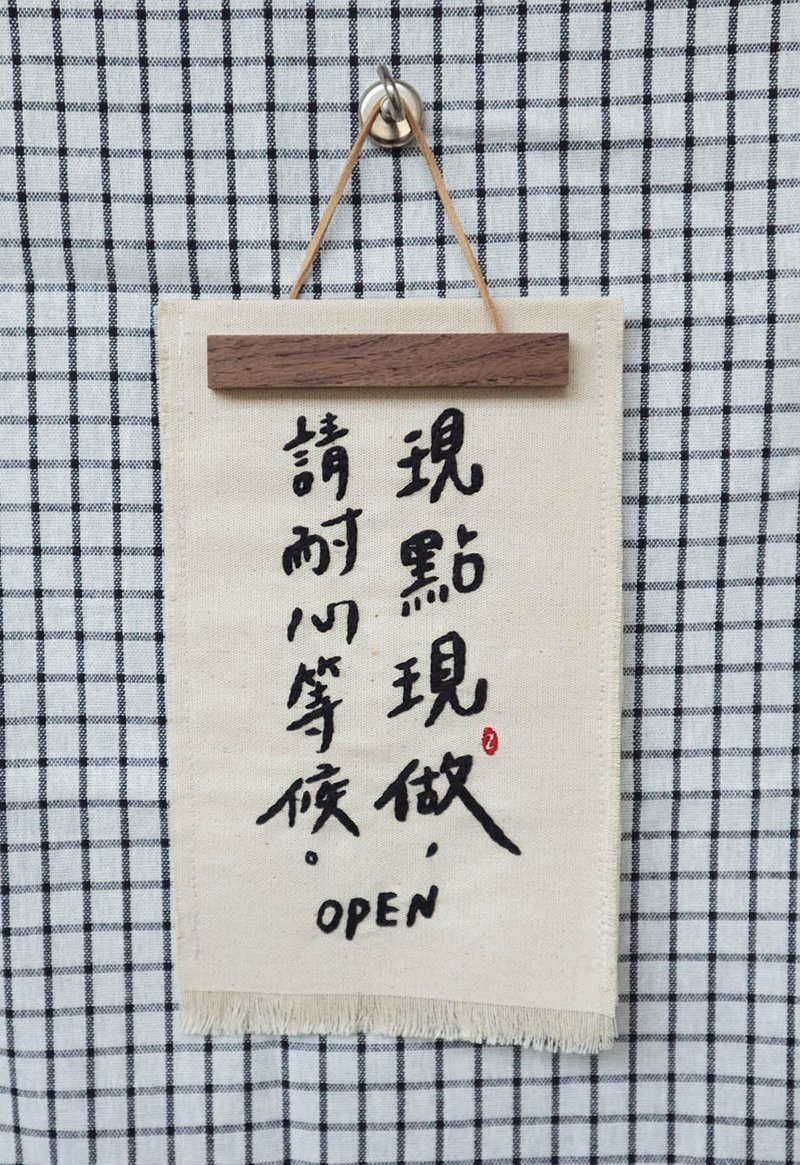 現點現做，
請耐心等候。
OPEN